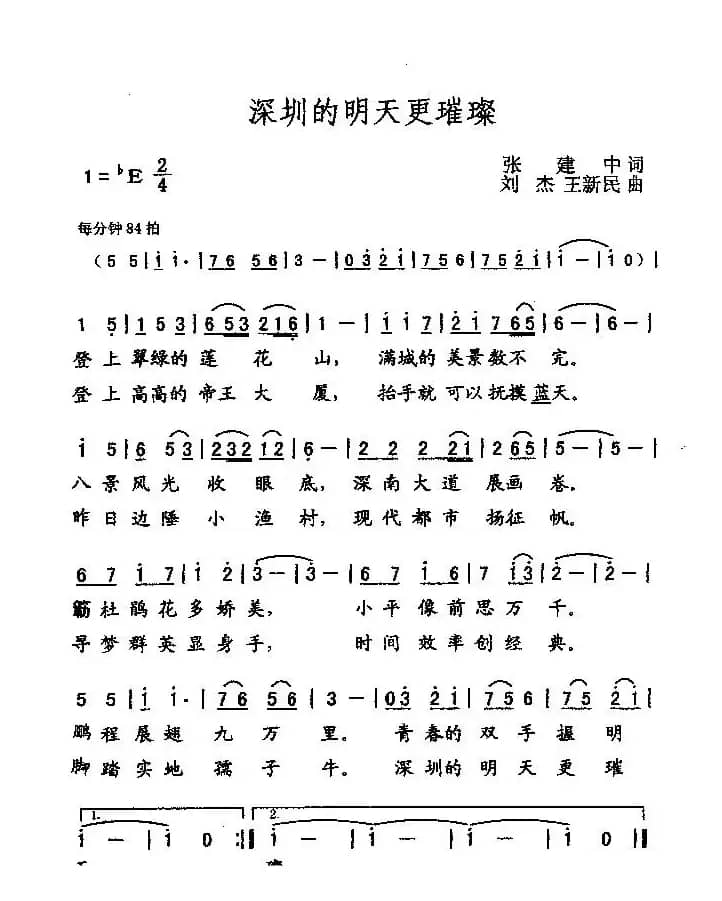 深圳的明天更璀璨
1=♭E 2/4
张建中词
刘杰 王新民曲
每分钟84拍
(5 5|i i·|76 56|3 -|03 2i|75 6|75 2i|i -|i 0)|
1 5|1 5 3|653 216|1 -|i i 7|2 i 765|6 -|6 -|
登上翠绿的莲花山，满城的美景数不完。
登上高高的帝王大厦，抬手就可以抚摸蓝天。
i 5|6 53|2 3 2 12|6 -|2 2 2 21|2 65|5 -|5 -|
八景风光收眼底，深南大道展画卷。
昨日边陲小渔村，现代都市扬征帆。
67 i7|i 2|3 -|3 -|67 i6|7 i3|2 -|2 -|
杜鹃花多娇美，小平像前思万千。
寻梦群英显身手，时间效率创经典。
5 5|i i·|76 56|3 -|03 2i|75 6|75 2i|
鹏程展翅九万里。青春的双手握明
脚踏实地孺子牛。深圳的明天更璀
1. 2.
i -|i 0:‖i -|i -|i -|i 0‖